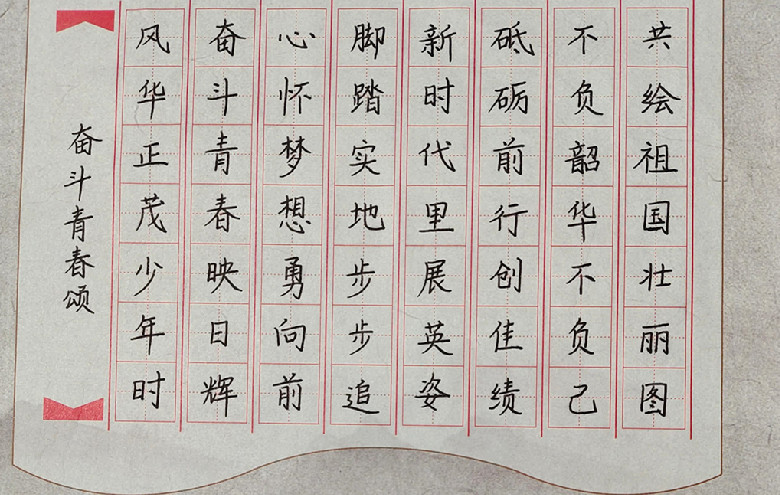 奋斗青春颂
风华正茂少年时
奋斗青春映日辉
心怀梦想勇向前
脚踏实地步步追
新时代里展英姿
砥砺前行创佳绩
不负韶华不负己
共绘祖国壮丽图